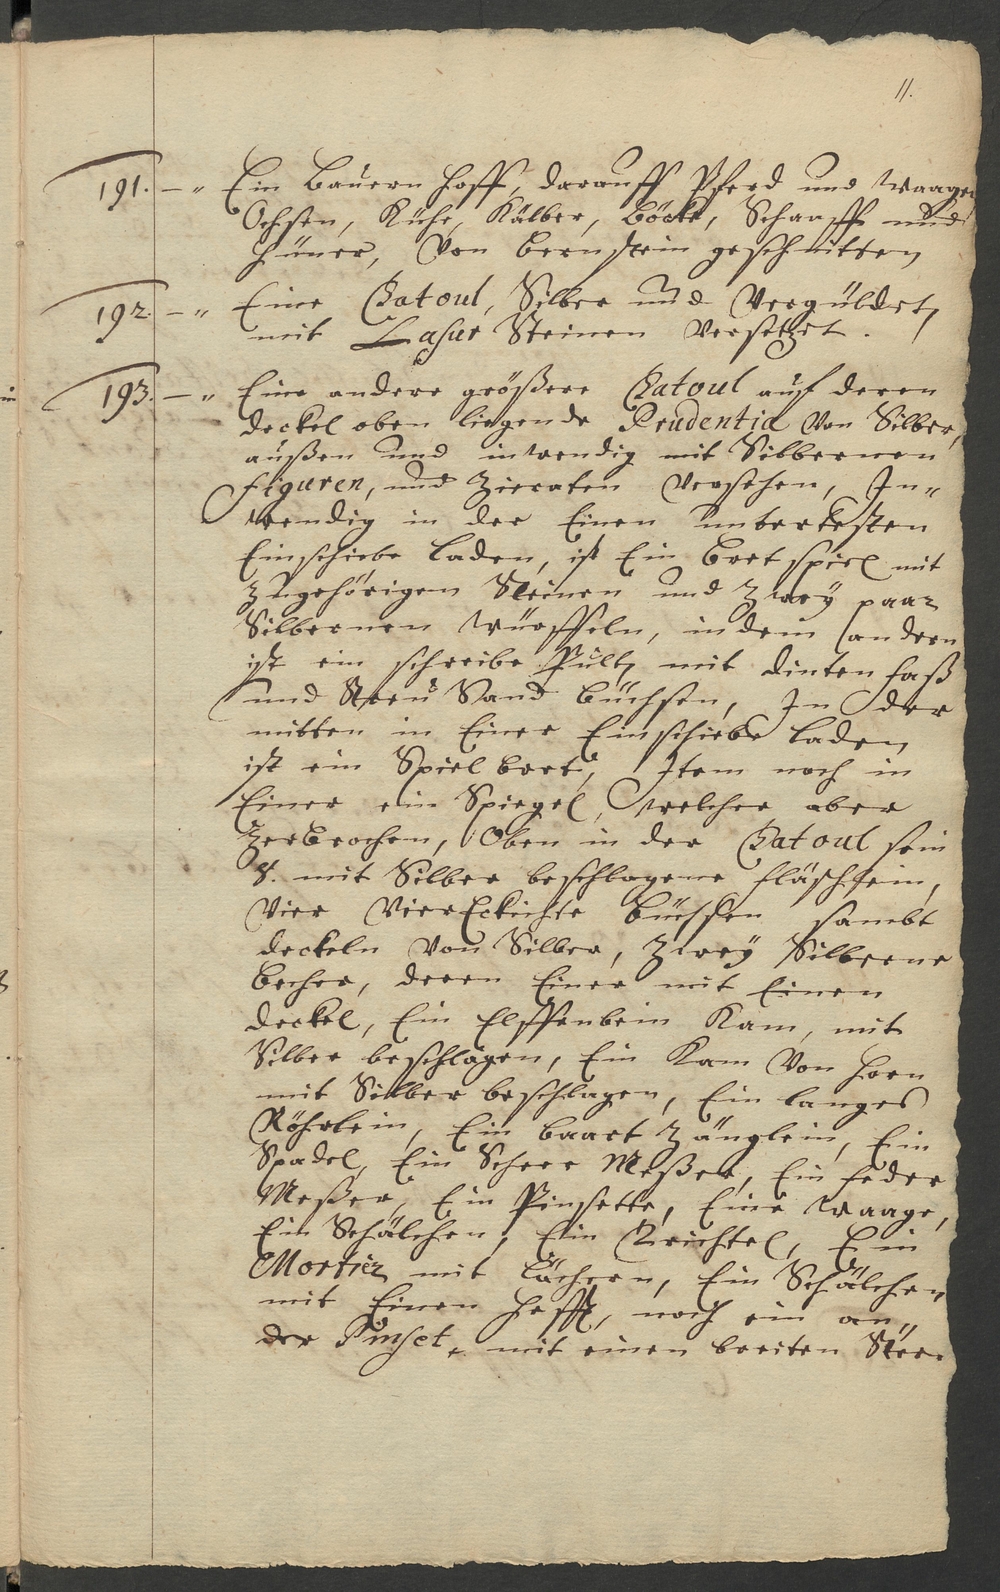 11.
191. — " Ein Bauern hoff, darauff Pferd und Waagen
Ochsen, Kühe, Kälber, Böcke, Schaaffe und
hüner, Von bernstein geschnitten
192. — " Eine Chatoul, Silber und Vergüldet,
mit Lasur Steinen Versetzet.
193. — " Eine andere größere Chatoul auf deren
deckel oben liegende Prudentia Von Silber,
außen und inwendig mit Silbernen
figuren, und Zieraten Versehen, In-
wendig in der Einen untersten
Einschiebe laden, ist Ein bret spiel mit
zugehörigen Steinen und Zweÿ paar
Silbernen Würffeln, in dem andern
ist ein schreibe Pult, mit dintenfaß
und Streü Sand büchsen, In der
mitten in Einer Einschiebe laden
ist ein Spiel bret, Item noch in
Einer ein Spiegel, welcher aber
Zerbrochen, Oben in der Chatoul sein
8. mit Silber beschlagene fläschlein,
Vier VierEckichte büchsen sambt
deckeln Von Silber, Zweÿ Silberne
becher, deren Einer mit Einen
deckel, Ein Elffenbein Kam, mit
Silber beschlagen, Ein Kam Von horn
mit Silber beschlagen, Ein langes
Röhrlein, Ein baart Zänglein, Ein
Spadel, Ein Scheer Meßer, Ein feder
Meßer, Ein Pinsette, Eine Waage,
Ein Schälchen, Ein Trichtel, Ein
Mortier mit löchern, Ein Schälchen
mit Einen hefft, noch ein an-
der Pinset, mit einen breiten